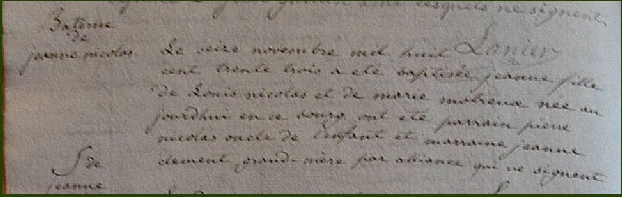 lesquels ne signent
Batême
de
jeanne nicolas.
Le seize novembre mil huit
cent trente trois a eté baptisée jeanne fille
de Louis nicolas et de marie née au
jourdhui en ce bourg, ont eté parrain pierre
nicolas oncle de l'enfant et marraine jeanne
clement grand-mère par aliance qui ne signent
S de
jeanne